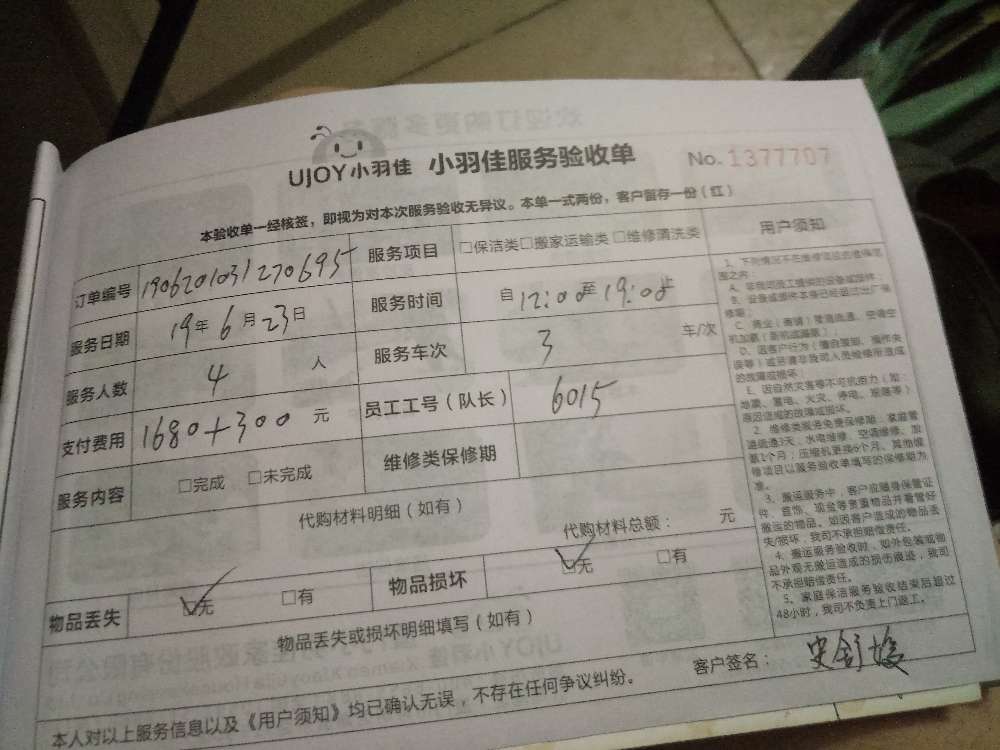 UJOY小羽佳 小羽佳服务验收单 No.1377707
本验收单一经核签，即视为对本次服务验收无异议。本单一式两份，客户留存一份（红）
订单编号 1906201031270695 服务项目 □保洁类□搬家运输类□维修清洗类 用户须知
服务日期 19年6月23日 服务时间 自12:00至19:00止
服务人数 4 人 服务车次 3 车/次
支付费用 1680+300 元 员工工号（队长） 6015
服务内容 □完成 □未完成 维修类保修期
代购材料明细（如有）
代购材料总额： 元
物品丢失 ☑无 □有 物品损坏 ☑无 □有
物品丢失或损坏明细填写（如有）
本人对以上服务信息以及《用户须知》均已确认无误，不存在任何争议纠纷。 客户签名：
A、非我司员工提供的设备或部件；
E、因自然灾害等不可抗力（如：
地震、雷电、火灾、停电、爆炸等）
原因造成的故障或损坏。
2、维修类服务免费保修期：家庭管
道疏通3天、水电维修、空调维修、加
氨1个月；压缩机更换6个月、其他维
修项目以服务验收单填写的保修期为
准。
3、搬运服务中，客户应随身保管证
件、首饰、现金等贵重物品并看管好
搬运的物品。如因客户造成的物品丢
失/损坏，我司不承担赔偿责任。
4、搬运服务验收时，如外包装或物
品外观无搬运造成的损伤痕迹，我司
不承担赔偿责任。
5、家庭保洁服务验收结束后超过
48小时，我司不负责上门返工。